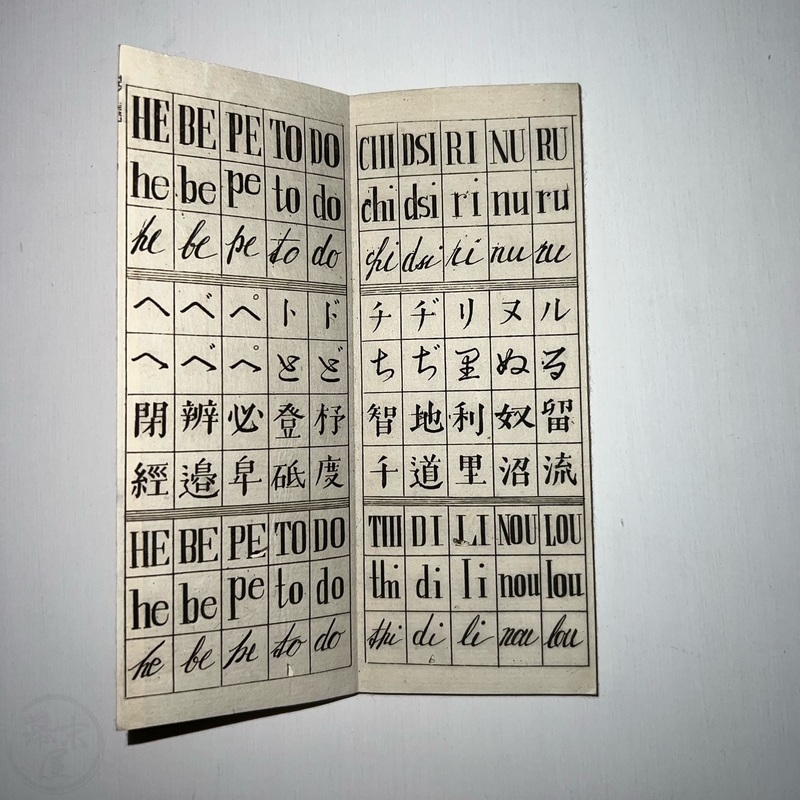 HE BE PE TO DO
he be pe to do
he be pe to do
ヘ ベ ペ ト ド
へ べ ぺ と ど
閉 辨 必 登 杼
經 邉 皁 砥 度
HE BE PE TO DO
he be pe to do
he be pe to do
CHI DSI RI NU RU
chi dsi ri nu ru
chi dsi ri nu ru
チ ヂ リ ヌ ル
ち ぢ 里 ぬ る
智 地 利 奴 留
千 道 里 沼 流
THI DI LI NOU LOU
thi di li nou lou
thi di li nou lou